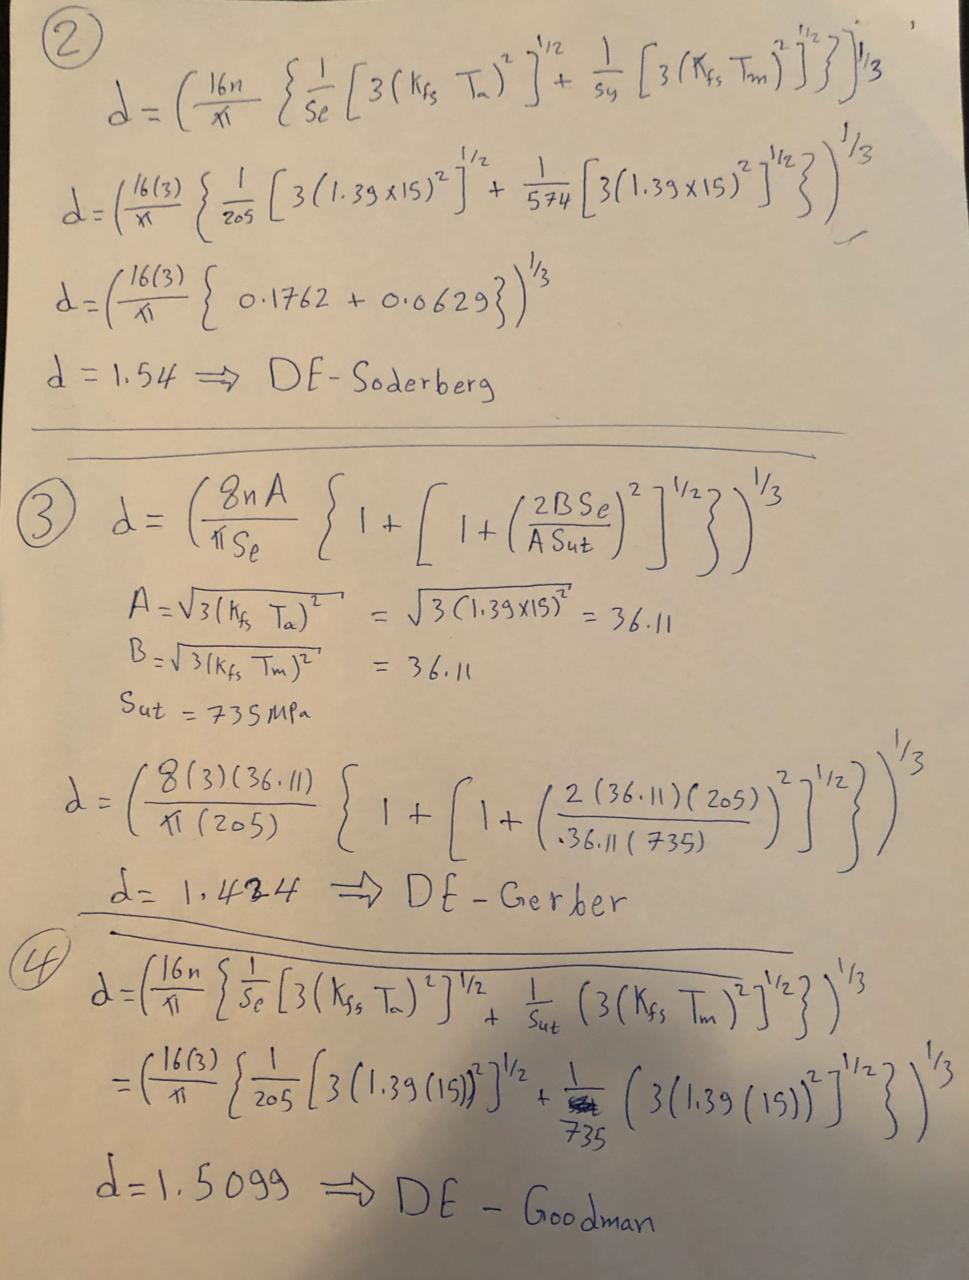 2
d = (16n/π {1/Se [3(Kfs Ta)²]^1/2 + 1/Sy [3(Kfs Tm)²]^1/2})^1/3
d = (16(3)/π {1/205 [3(1.39×15)²]^1/2 + 1/574 [3(1.39×15)²]^1/2})^1/3
d = (16(3)/π {0.1762 + 0.0629})^1/3
d = 1.54 ⇒ DE-Soderberg
3 d = (8nA/πSe {1 + [1 + (2BSe/ASut)²]^1/2})^1/3
A = √3(Kfs Ta)² = √3(1.39×15)² = 36.11
B = √3(Kfs Tm)² = 36.11
Sut = 735 MPa
d = (8(3)(36.11)/π(205) {1 + [1 + (2(36.11)(205)/36.11(735))²]^1/2})^1/3
d = 1.424 ⇒ DE-Gerber
4
d = (16n/π {1/Se [3(Kfs Ta)²]^1/2 + 1/Sut (3(Kfs Tm)²]^1/2})^1/3
= (16(3)/π {1/205 [3(1.39(15))²]^1/2 + 1/735 (3(1.39(15))²]^1/2})^1/3
d = 1.5099 ⇒ DE-Goodman